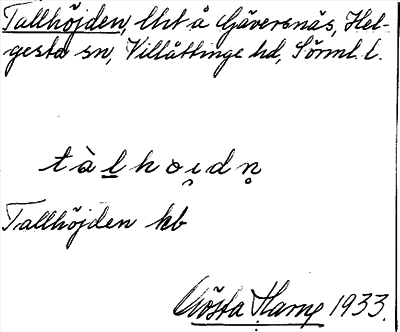 Tallhöjden, lht å Gäversnäs, Hel-
gesta sn, Villåttinge hd, Sörml. l.
tàl̲hɷi̯dn̥
Tallhöjden kb
Gösta Harne 1933.